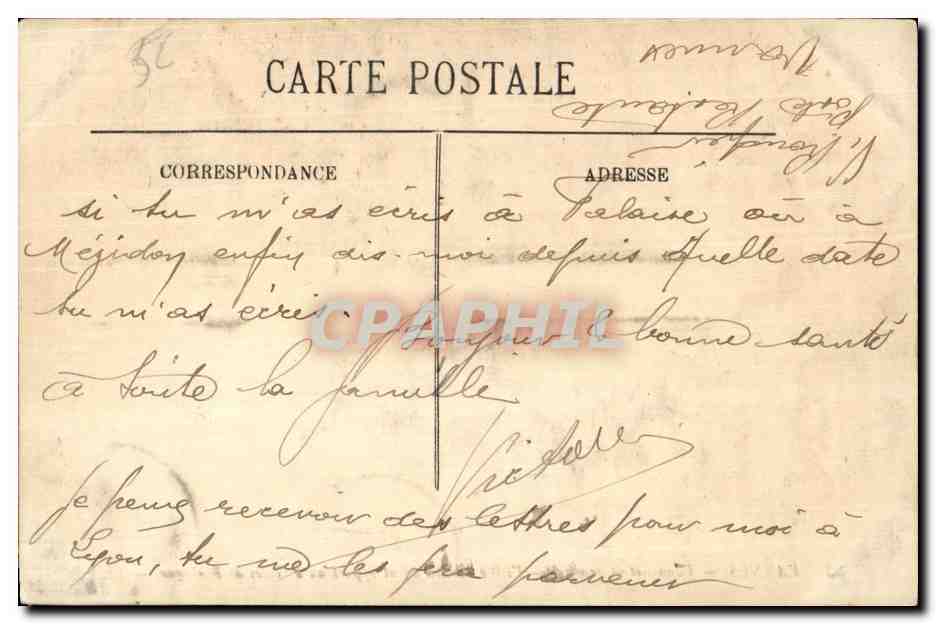 52
CARTE POSTALE
V. Boucher
Poste Restante
Vannes
CORRESPONDANCE
ADRESSE
si tu m'as écris à Falaise où à
Mézidon enfin dis-moi depuis quelle date
tu m'as écris. Bonjour & bonne santé
à toute la famille
Victor
je peux recevoir des lettres pour moi à
Lyon, tu me les fera parvenir
CPAPHIL